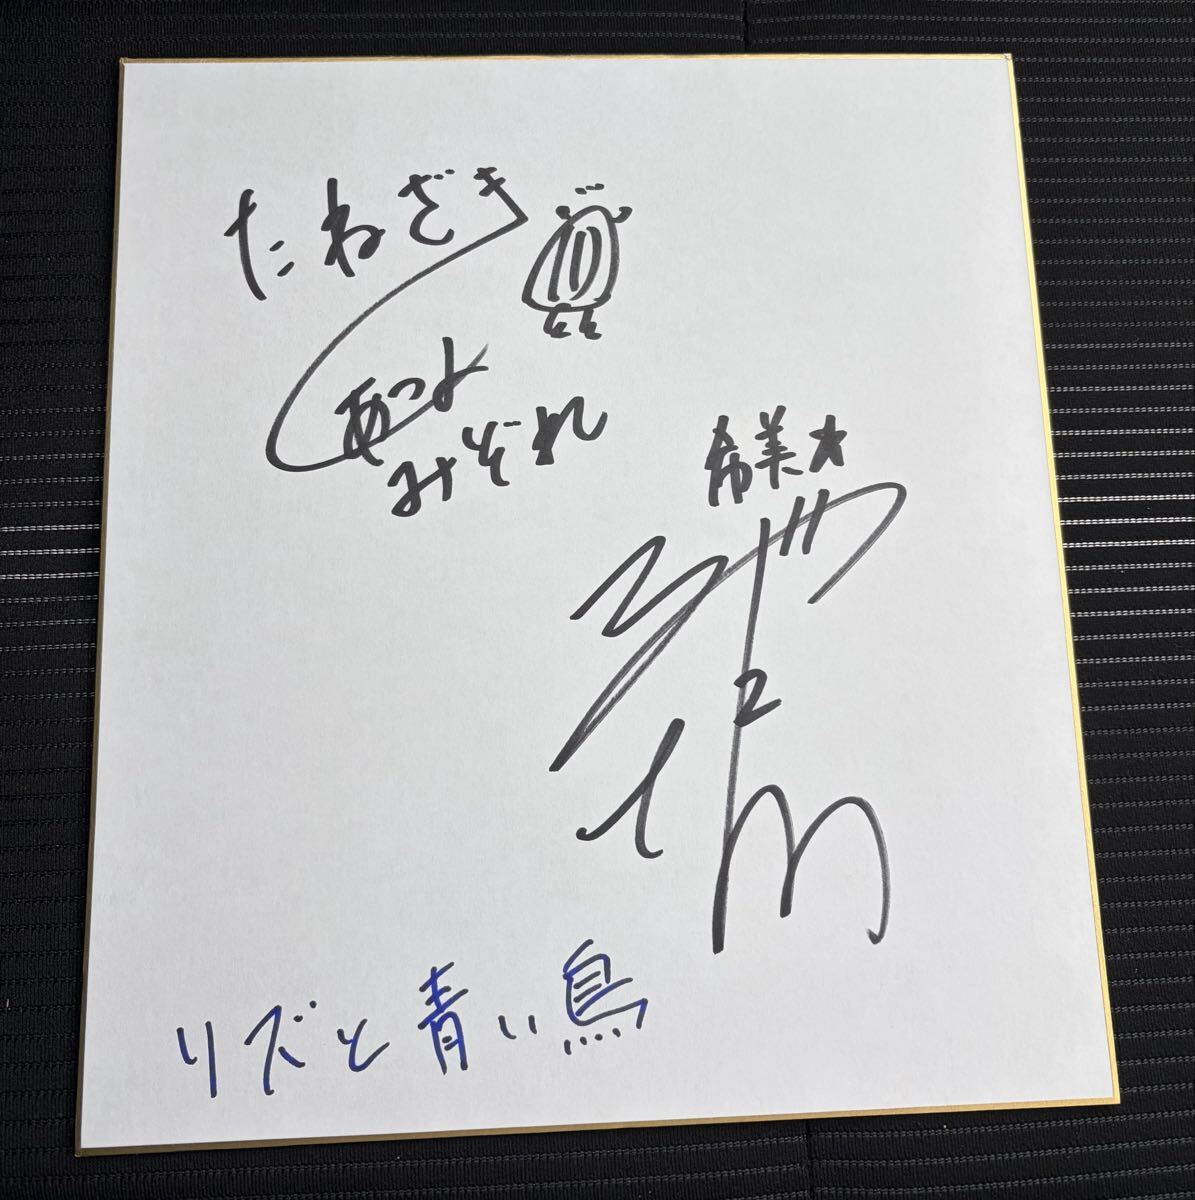 たねざき
あつみ
みぞれ
希美★
リズと青い鳥